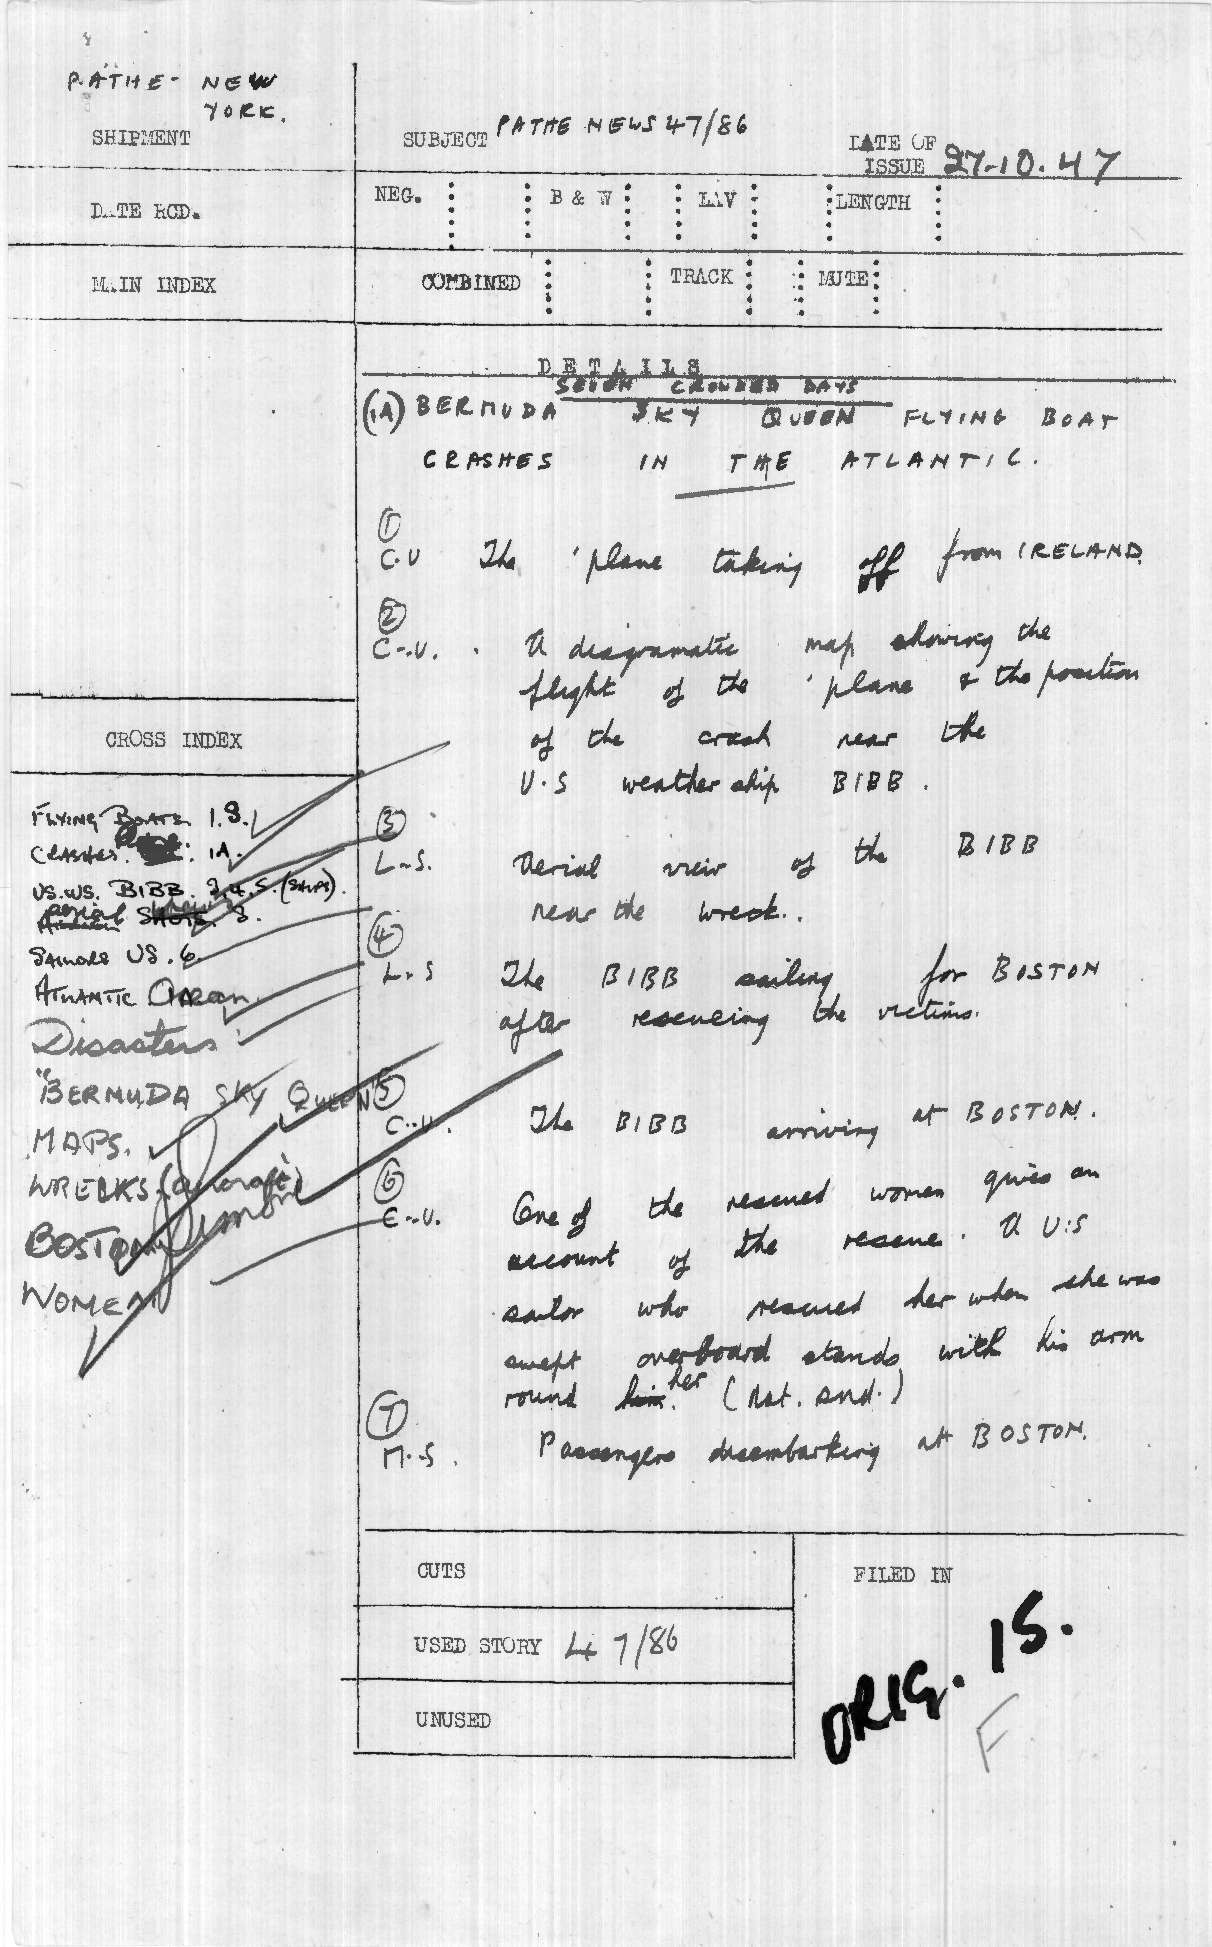 PATHE - NEW
YORK.
SHIPMENT
SUBJECT PATHE NEWS 47/86
DATE OF
ISSUE 27-10.47
DATE RCD.
NEG. B & W LAV LENGTH
MAIN INDEX
COMBINED TRACK MUTE
DETAILS
SEVEN CROWDED DAYS
(1A) BERMUDA SKY QUEEN FLYING BOAT
CRASHES IN THE ATLANTIC.
1
C.U The 'plane taking off from IRELAND.
2
C-.U. A diagramatic map showing the
flight of the 'plane & the position
of the crash near the
U.S weather ship BIBB.
3
L-S. Aerial view of the BIBB
near the wreck.
4
L-S The BIBB sailing for BOSTON
after rescueing the victims.
5
C-.U. The BIBB arriving at BOSTON.
6
C-.U. One of the rescued women gives an
account of the rescue. A U.S
sailor who rescued her when she was
swept overboard stands with his arm
round him. her (Nat. snd.)
7
M.-S. Passengers disembarking at BOSTON.
CROSS INDEX
FLYING BOATS 1.3.
CRASHES. 1A.
US.WS. BIBB. 3,4,5. (SHIPS).
Aerial Views SHOTS. 3.
SAILORS US. 6.
ATLANTIC Ocean.
Disasters
"BERMUDA SKY QUEEN"
MAPS.
WRECKS (aircraft)
BOSTON
WOMEN
CUTS
USED STORY 47/86
UNUSED
FILED IN
ORIG. 15.
F